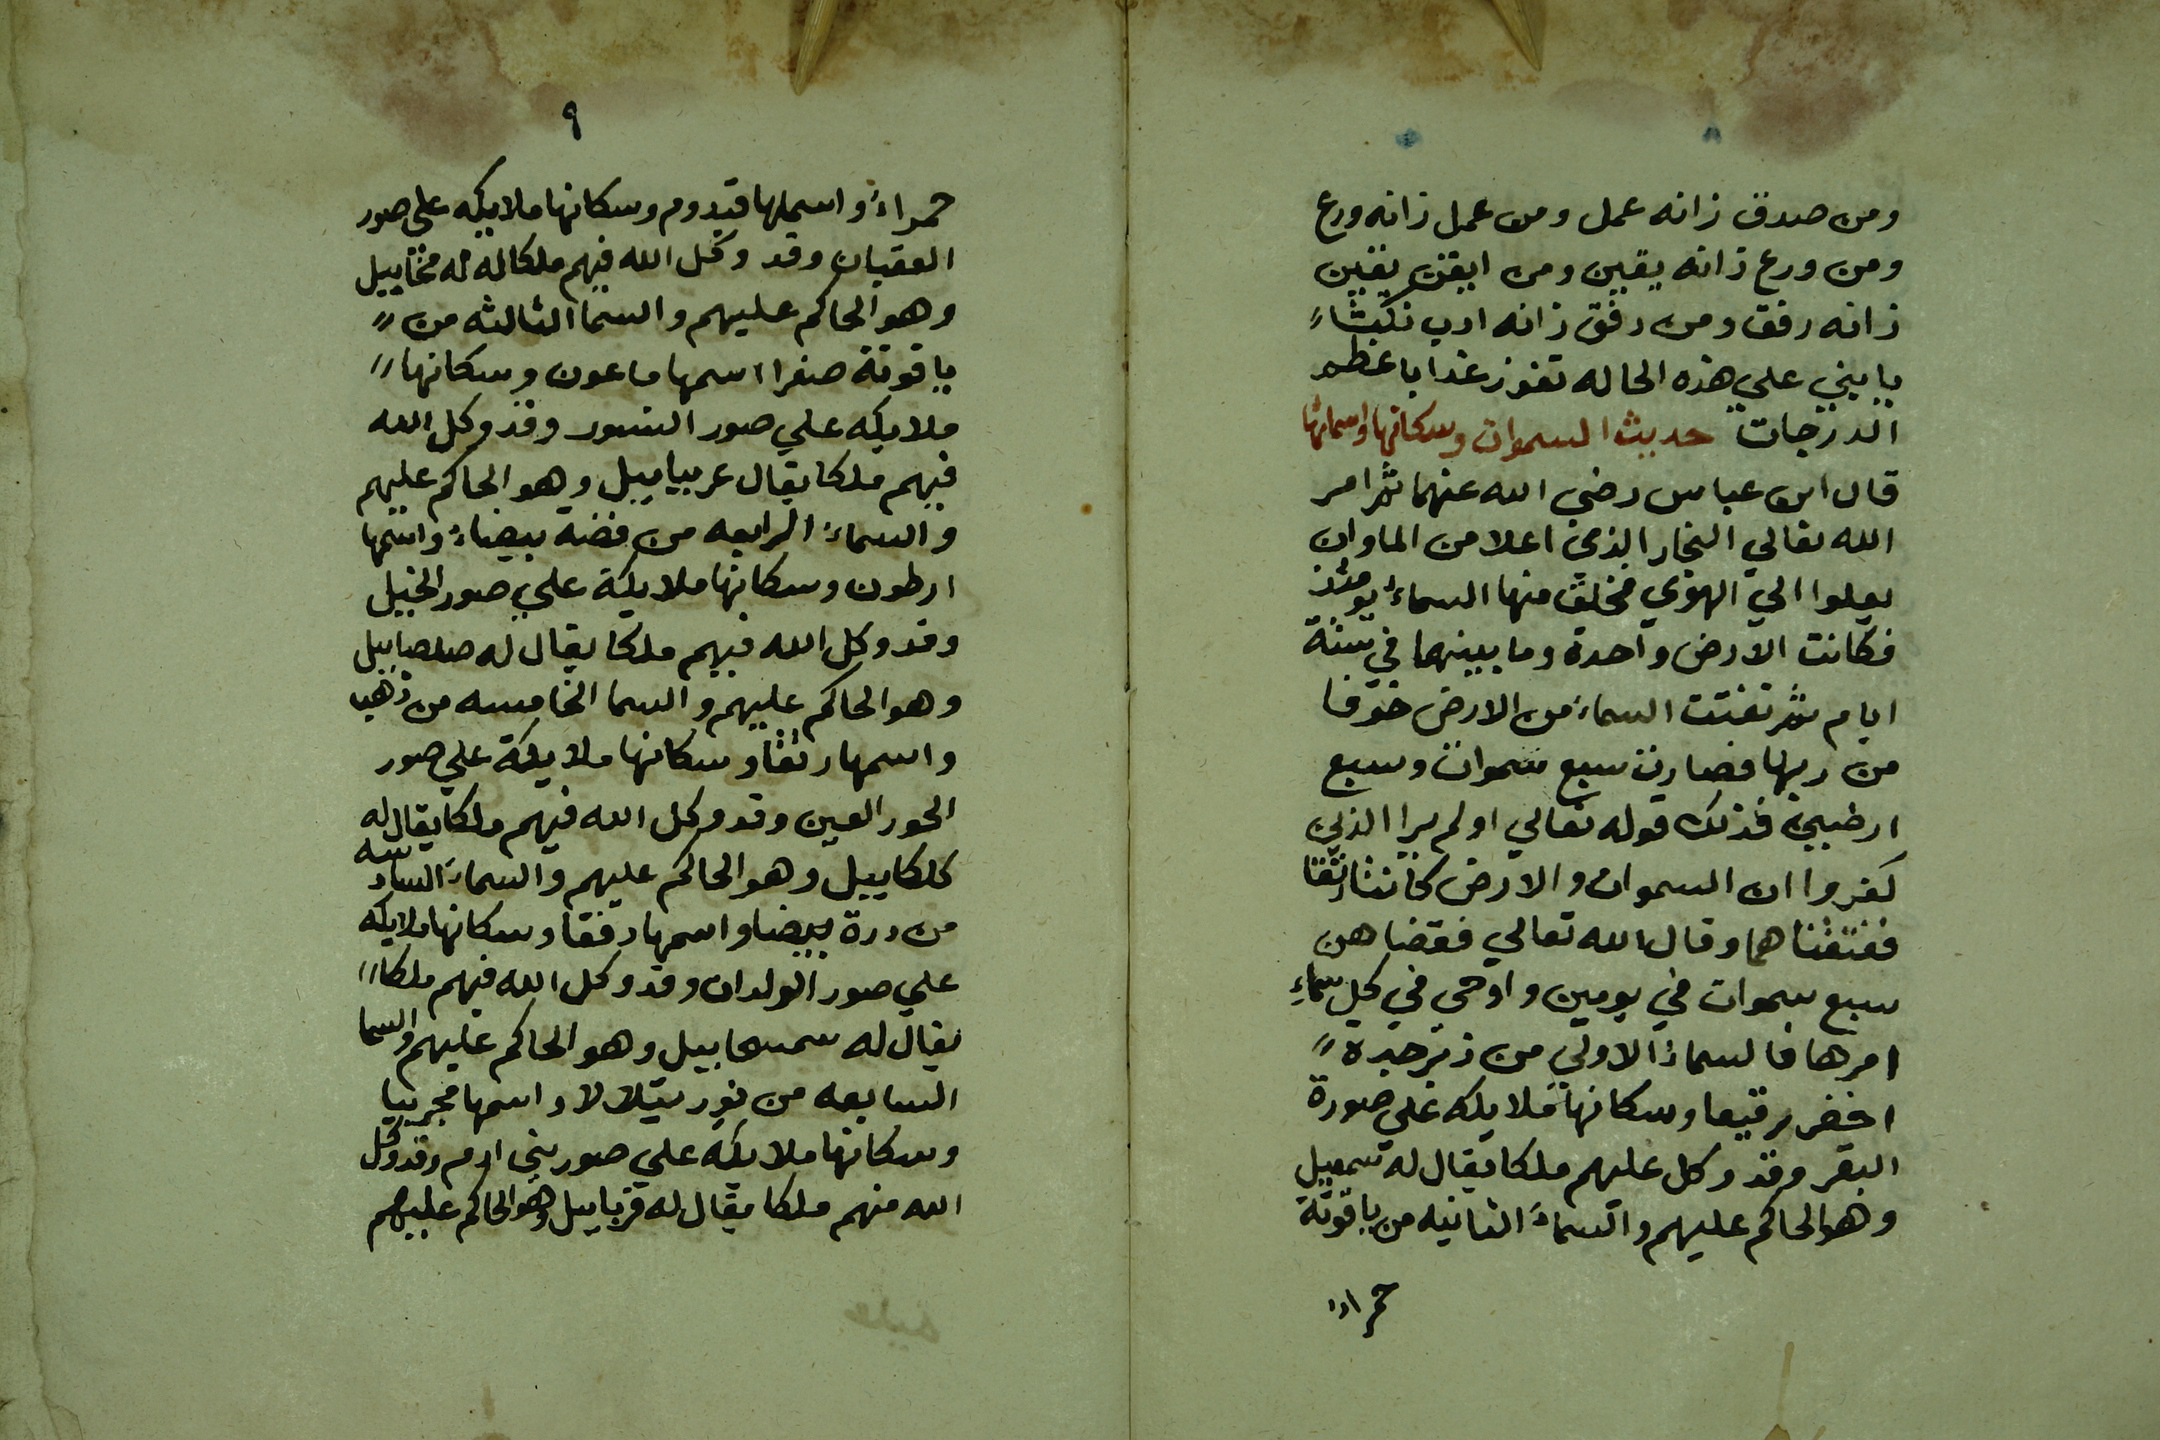 ومن صدق زانه عمل ومن عمل زانه ورع
ومن ورع زانه يقين ومن ايقن يقين
زانه رفق ومن رفق زانه ادب
يا بني علي هذه الحاله تفوز غدا باعظم
الدرجات حديث السموات وسكانها واسمائها
قال ابن عباس رضي الله عنهما ثم امر
الله تعالي البخار الذي اعلا من الماء ان
يعلوا الي الهوي فخلق منها السماء يومئذ
فكانت الارض واحدة وما بينهما في ستة
ايام ثم تفتت السماء من الارض خوفا
من ربها فصارت سبع سموات وسبع
ارضين فذلك قوله تعالي اولم يرا الذين
كفروا ان السموات والارض كانتا رتقا
ففتقنا هما وقال الله تعالي فقضاهن
سبع سموات في يومين واوحي في كل سماء
امرها فالسماء الاولي من زبرجده
اخضر برقيعا وسكانها ملايكه علي صورة
البقر وقد وكل عليهم ملكا يقال له سمعيل
وهو الحاكم عليهم والسماء الثانيه من ياقوتة
حمراء
٩
حمراء واسمها قيدوم وسكانها ملايكه علي صور
العقبان وقد وكل الله فيهم ملكا له مخاييل
وهو الحاكم عليهم والسما الثالثه من
ياقوتة صفرا اسمها ماعون وسكانها
ملايكه علي صور النسور وقد وكل الله
فيهم ملكا يقال عربياييل وهو الحاكم عليهم
والسماء الرابعه من فضة بيضاء واسمها
ارطون وسكانها ملايكة علي صور الخيل
وقد وكل الله فيهم ملكا يقال له صلصاييل
وهو الحاكم عليهم والسما الخامسه من ذهب
واسمها رتقا وسكانها ملايكة علي صور
الحور العين وقد وكل الله فيهم ملكا يقال له
كلكاييل وهو الحاكم عليهم والسماء السادسه
من درة بيضا واسمها رفقا وسكانها ملايكه
علي صور الولدان وقد وكل الله فيهم ملكا
يقال له سمسحاييل وهو الحاكم عليهم والسما
السابعه من نور يتلالا واسمها عجريبا
وسكانها ملايكه علي صور بني ادم وقد وكل
الله منهم ملكا يقال له قرياييل وهو الحاكم عليهم